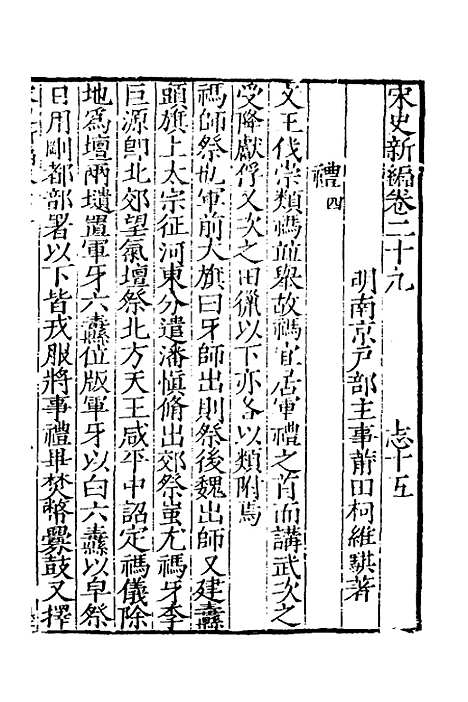 宋史新編卷二十九　　志十五
明南京戶部主事莆田柯維騏著
禮四
文王伐崇類禡並舉故禡宜居軍禮之首而講武次之
受降獻俘又次之田獵以下亦各以類附焉
禡師祭也軍前大旗曰牙師出則祭後魏出師又建纛
頭旗上太宗征河東分遣潘慎脩出郊祭蚩尤禡牙李
巨源卽北郊望氣壇祭北方天王咸平中詔定禡儀除
地爲壇兩壝置軍牙六纛位版軍牙以白六纛以皁祭
日用剛都部署以下皆戎服將事禮畢焚幣釁鼓又擇